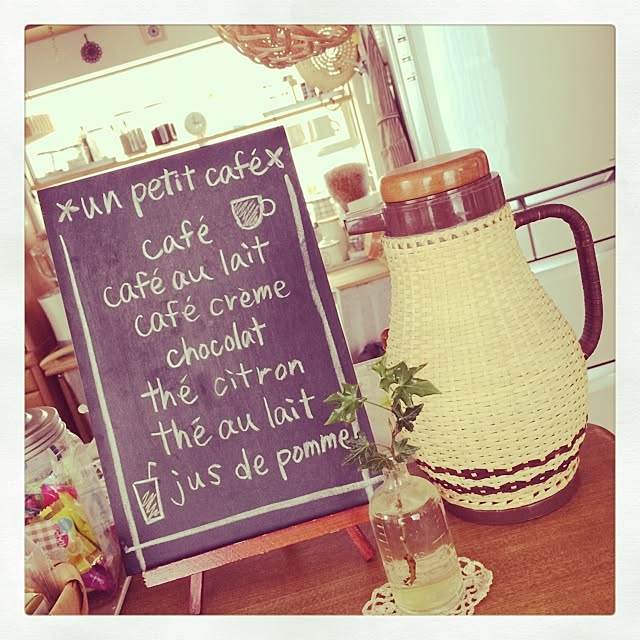 *un petit café*
café
café au lait
café crème
chocolat
thé citron
thé au lait
jus de pomme